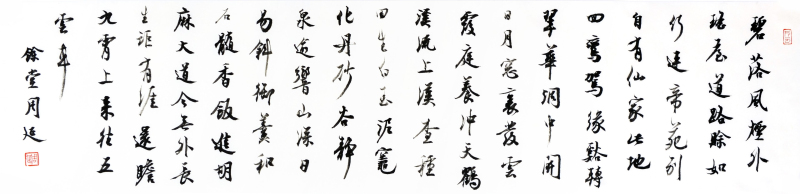 碧落風煙外
瑤臺道路賒如
何連帝苑別
自有仙家此地
回鸞駕緣谿轉
翠華洞中開
日月窗裏發雲
霞庭養沖天鶴
溪流上漢查種
田生白玉泥竈
化丹砂谷靜
泉逾響山深日
易斜御羹和
石髓香飯進胡
麻大道今無外長
生詎有涯還瞻
九霄上來往五
雲車
餘堂周廷